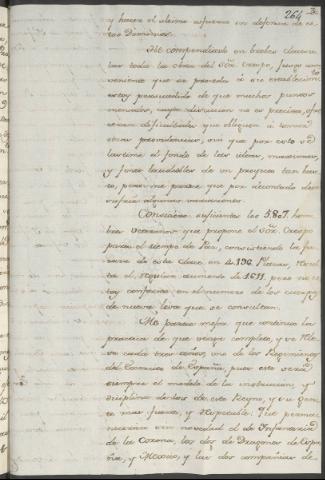 264 3
y hacer el ultimo esfuerzo en defensa de es-
tos Dominios.
He compendiado en breves clausu-
las toda la obra del Sór. Crespo, juzgo com-
beniente que se proceda á su establecimto.
estoy persuadido de que muchos puntos
menudos, cuya discusion no es precisa, ofre-
ceran dificultades que obliguen á tomar
otras providencias, sin que por esto se
bariene el fondo de las ideas, maximas,
y fines laudables de un proyecto tan bas-
to, pero me parece que por decontado de-
vo fixar algunas variaciones.
Considero suficientes los 5.807. hom-
bres veteranos que propone el Sór. Crespo
para el tiempo de Paz, consistiendo la fu-
erza de esta clase en 4.196. Plazas, resul-
ta el aumento de 1.611. pero no es-
toy conforme en el numero de los cuerpos
de nueva leva que se consultan.
Me parece mejor que continue la
practica de que venga completo, y se rele-
ve cada tres años, uno de los Regimientos
del Exercito de España, pues este será
siempre el modelo de la instruccion, y
disciplina de los de este Reyno, y su Gen-
te mas fuerte, y respetable. Que perma-
necieran sin novedad el de Infanteria
de la Corona, los dos de Dragones de Espa-
ña, y Mexico, y las dos compañias de